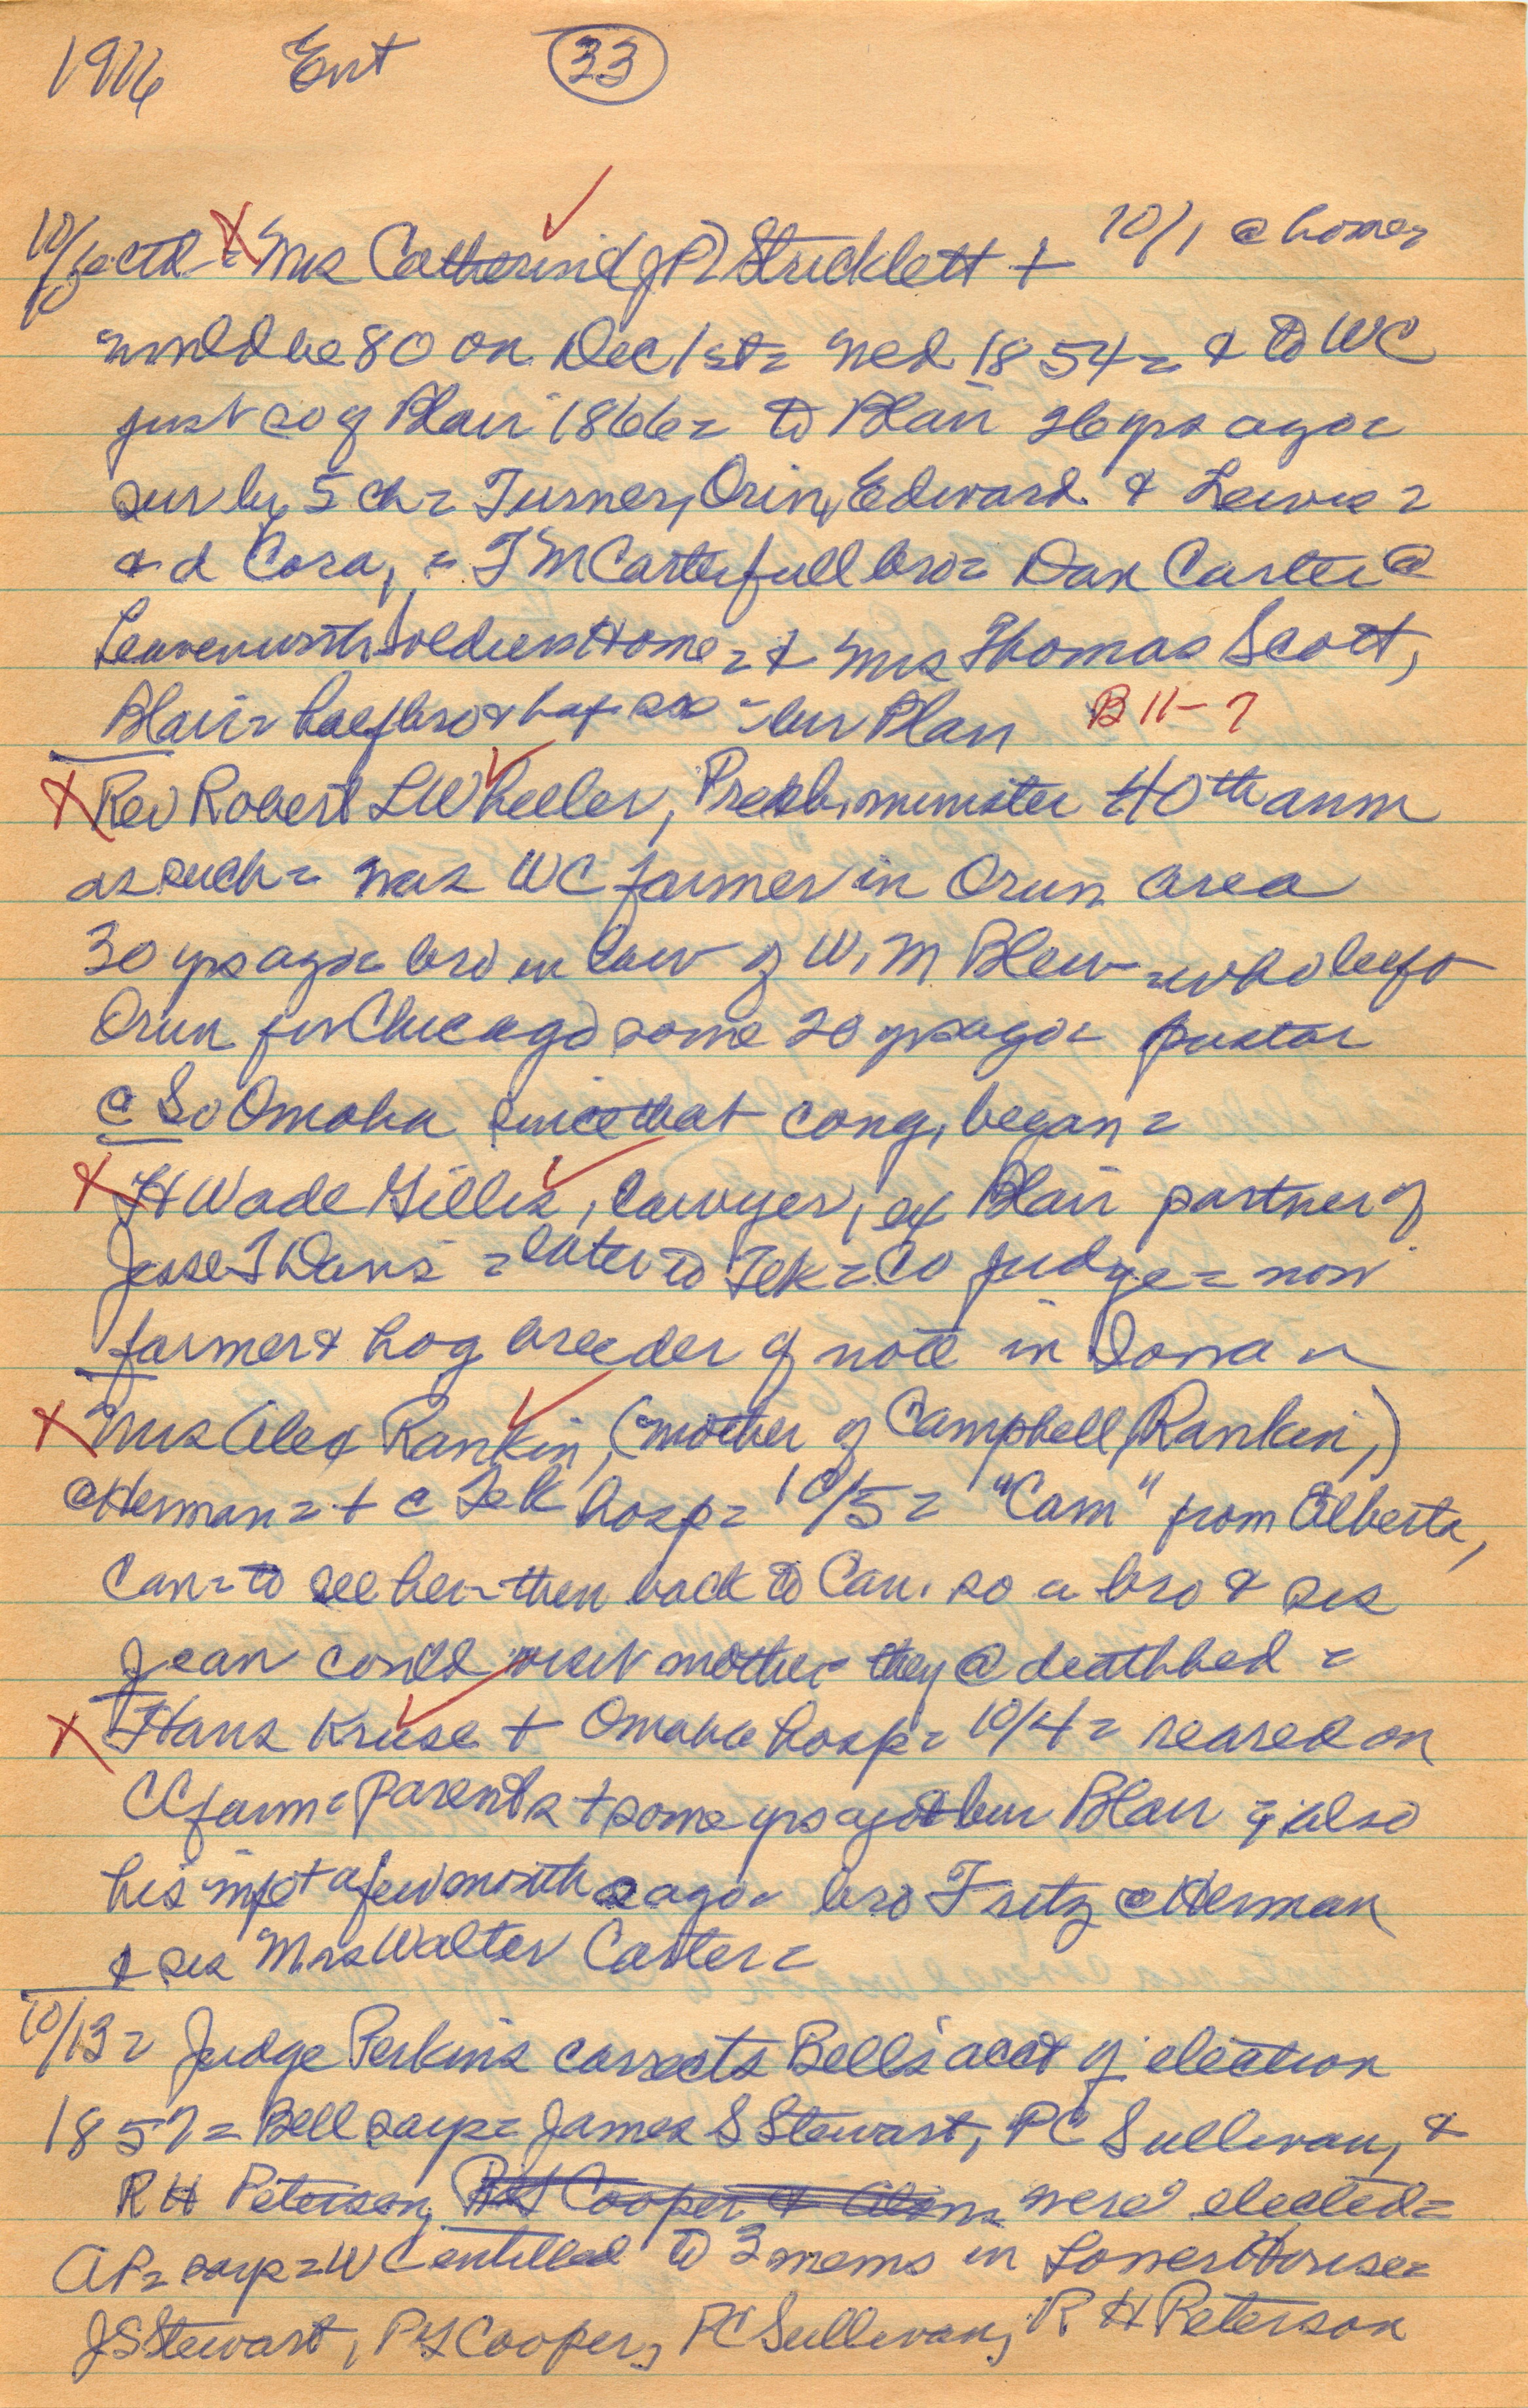 1916 Ent 33
10/6 = Mrs Catherine (J P) Stricklett + 10/1 @ home =
would be 80 on Dec 1st = wed 1854 = & to WC
just so of Blair 1866 = to Blair 26 yrs ago =
sur by 5 ch = Turner, Orin, Edward & Lewis =
& d Cora, = T M Carter full bro = Dan Carter @
Leavenworth Soldiers Home = & Mrs Thomas Scott,
Blair = half bro & half sis = bur Blair B 11-7
X Rev Robert L Wheeler, Presb. minister 40th ann
as such = was WC farmer in Orum area
30 yrs ago = bro in law of W. M Blew = who left
Orum for Chicago some 20 yrs ago = pastor
@ So Omaha since that cong, began =
X H Wade Gillis, lawyer, ex Blair partner of
Jesse T Davis = later to Tek = Co judge = now
farmer & hog breeder of note in Iowa =
X Mrs Alex Rankin, (mother of Campbell Rankin,)
@ Herman = + @ Tek hosp = 10/5 = "Cam" from Alberta,
Can = to see her - then back to Can. so a bro & sis
Jean could visit mother = they @ deathbed =
X Hans Kruse + Omaha hosp = 10/4 = reared on
CC farm = Parents + some yrs ago & bur Blair = also
his + a few months ago = bro Fritz @ Herman
& sis Mrs Walter Carter =
10/13 = Judge Perkins corrects Bell's acct of election
1857 = Bell says = James S Stewart, P C Sullivan, &
R H Peterson, P G Cooper & were elected =
A P = says = WC entitled to 3 mems in Lower House =
J S Stewart, P G Cooper, P C Sullivan, R H Peterson